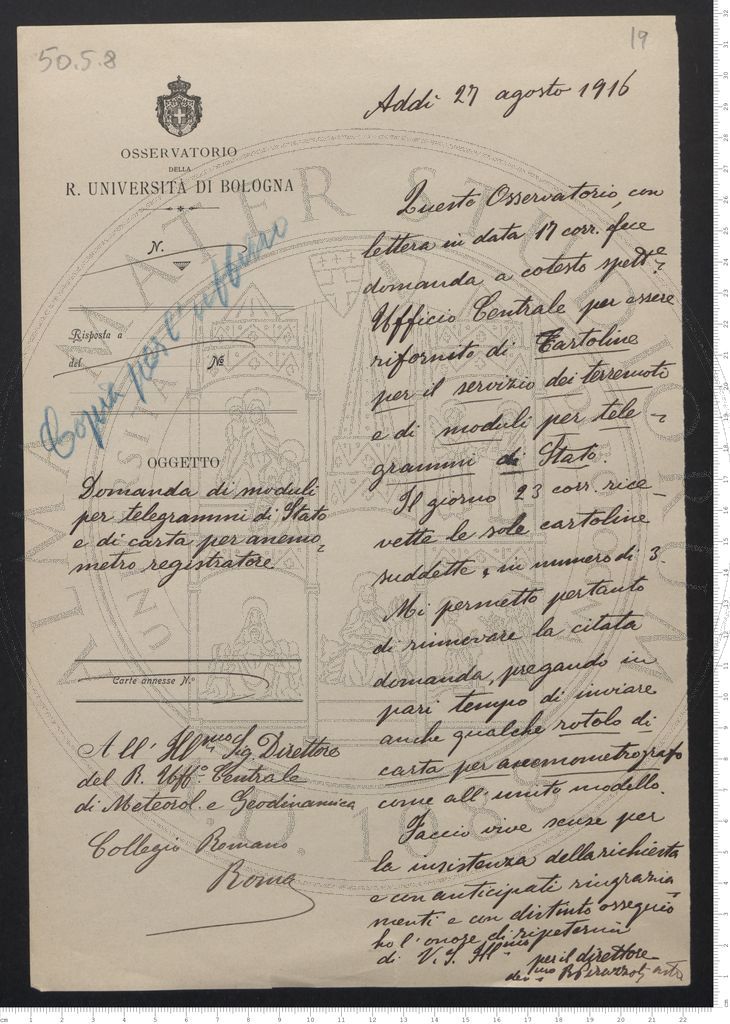 50.5.8
19
OSSERVATORIO
DELLA
R. UNIVERSITÀ DI BOLOGNA
N.
Risposta a
del No
Copia per l'ufficio
OGGETTO
Domanda di moduli
per telegrammi di Stato
e di carta per anemo-
metro registratore
Carte annesse N.o
All' Ill.mo Sig. Direttore
del R. Uff.o Centrale
di Meteorol. e Geodinamica
Collegio Romano
Roma
Addì 27 agosto 1916
Questo Osservatorio, con
lettera in data 17 corr. fece
domanda a cotesto spett.e
Ufficio Centrale per essere
rifornito di Cartoline
per il servizio dei terremoti
e di moduli per tele-
grammi di Stato.
Il giorno 23 corr. rice-
vette le sole cartoline
suddette, in numero di 3.
Mi permetto pertanto
di rinnovare la citata
domanda, pregando in
pari tempo di inviare
anche qualche rotolo di
carta per anemometrografo
come all'unito modello.
Faccio vive scuse per
la insistenza della richiesta
e con anticipati ringrazia-
menti e con distinto ossequio
ho l'onore di ripetermi
di V. S. Ill.ma
per il direttore
dev.mo